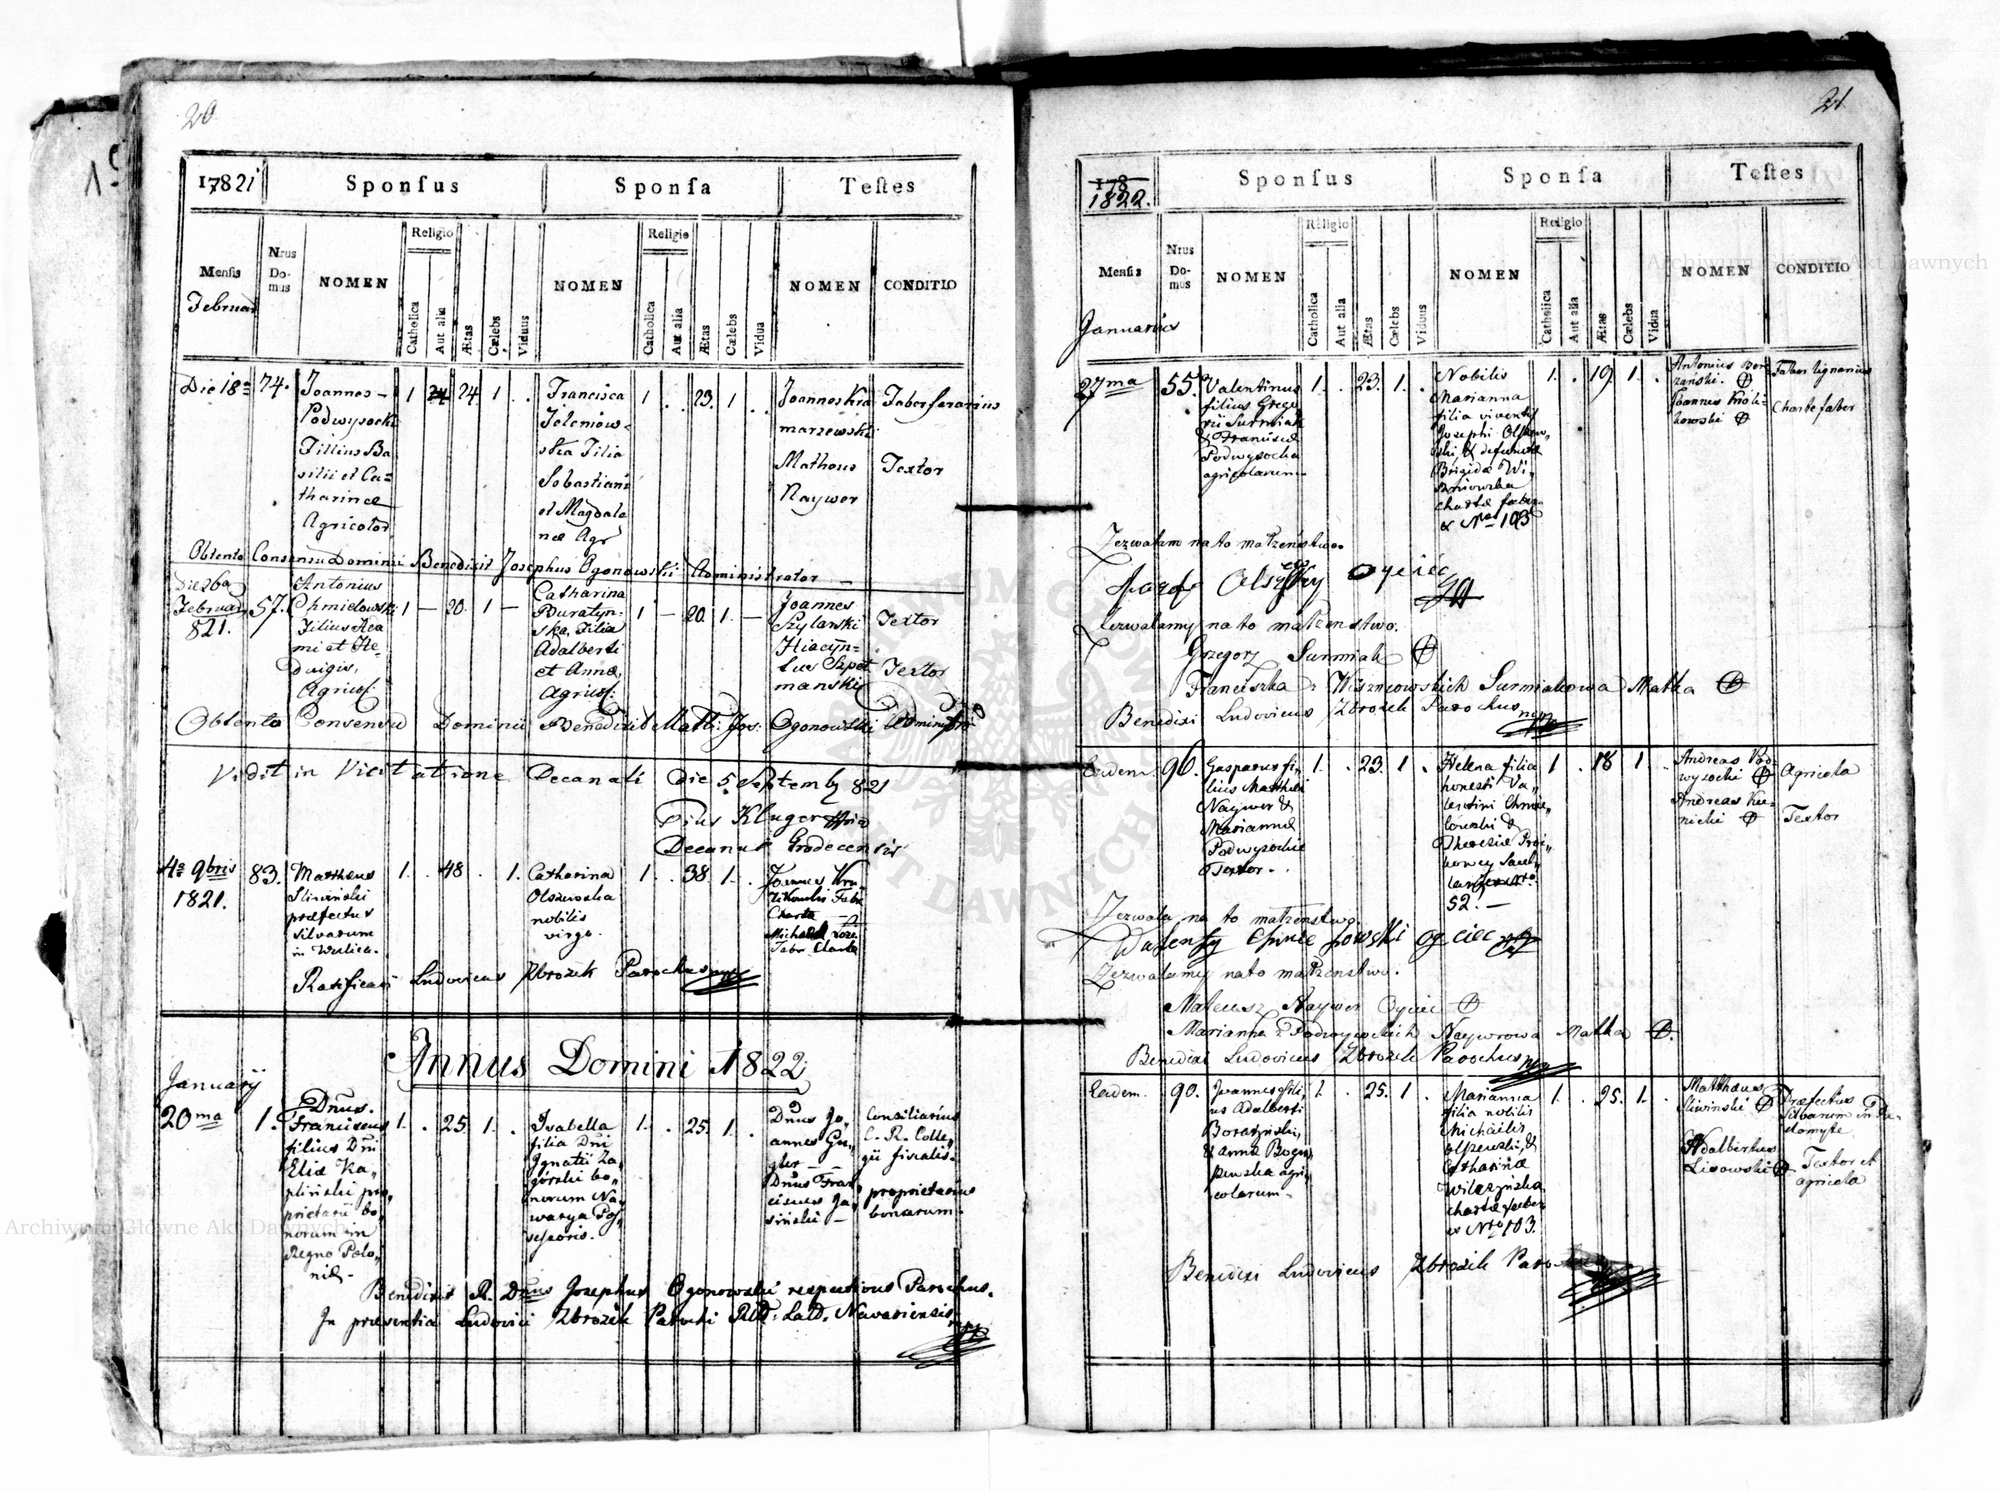 20
17821
Sponſus
Sponſa
Teſtes
Menſis
Februar
Nrus
Do-
mus
NOMEN
Religio
Catholica
Aut alia
Ætas
Cœlebs
Viduus
NOMEN
Religio
Catholica
Aut alia
Ætas
Cœlebs
Vidua
NOMEN
CONDITIO
Die 18a
74.
Joannes
Podwysocki
Filius Ba
silii et Ca=
tharinæ
Agricolar
1
24
24.
1
Francisca
Sebastiani
et Magdale
næ Agr
1
23.
1
Joannes Kra
marzewski
Matheus
Naywer
Faber ferarius
Textor
Obtento Consensu Dominii Benedixit Josephus Ogonowski Administrator
Die 26a
Februar
821.
57.
Antonius
Chmielowski
Filius
et He-
dvigis,
Agricol:
1
20.
1
Catharina
Buratyn-
ska, Filia
Adalberti
et Annæ,
Agricol:
1
20.
1.
Joannes
Szylarski
Hiacyn=
tus Szpet
manski
Textor
Textor
Obtento Consensu Dominii Benedixit Math: Jos: Ogonowski Administr
Vidit in Visitatione Decanali Die 5 Septemb 821
Pius Kluger
Decanus Grodecensis
4a 9bris
1821.
83.
Mattheus
Sliwinski
præfectus
silvarum
1.
48
1.
Catharina
Olszewska
nobilis
virgo.
1.
38
1.
Joannes
Ratificavi Ludovicus Zbrożek Parochus mpp
Annus Domini 1822
January
20ma
1.
Dnus.
Franciscus
filius Dni
Eliæ Ka„
plinski pro„
prietarii bo„
norum in
Regno Polo„
niæ
1.
25
1.
Isabella
filia Dni
Ignatii Za„
górski bo„
norum Na„
warya Pos„
sessoris.
1.
25.
1.
Dnus Jo„
annes
Dnus Fran„
ciscus Ja„
siński
Consiliarius
C. R. Colle„
gii fiscalis.
proprietarius
bonorum.
Benedixit R. Dnus Josephus Ogonowski respectivus Parochus.
In præsentia Ludovici Zbrożek Parochi Rld: Latd. Navariensis mpp
21
178
1822.
Sponſus
Sponſa
Teſtes
Menſis
Januarius
Nrus
Do-
mus
NOMEN
Religio
Catholica
Aut alia
Ætas
Cœlebs
Viduus
NOMEN
Religio
Catholica
Aut alia
Ætas
Cœlebs
Vidua
NOMEN
CONDITIO
27ma
55.
Valentinus
filius Grego
rii Surmiak
& Franciscæ
Podwysocka
agricolarum
1.
23.
1.
Nobilis
Marianna
filia viventis
Josephi Olszew„
ski, & defunctæ
Brigidæ Wi„
śniowska
chartæ faber
ex Nro 103
1.
19.
1.
Antonius
Joannes Kroli-
kowski
Faber lignarius
Chartæ faber
Zezwalam na to małżeństwo.
Józef Olszewski Oyciec
Zezwalamy na to małżenstwo.
Grzegorz Surmiak
Franciszka z Wiszniowskich Surmiakowa Matka
Benedixi Ludovicus Zbrożek Parochus mpp
Eadem.
96.
Gasparus fi„
lius Matthæi
Naywer &
Mariannæ
Podwysockie
Textor.
1.
23.
1.
Helena filia
honesti Va„
lentini Chmie„
lowski &
52.
1
18
1.
Andreas Pod„
wysocki
Andreas
Agricola
Textor
Zezwala na to małżeństwo.
Walenty Chmielowski ociec
Zezwalamy na to małżenstwo.
Mateusz Naywer Oyciec
Marianna z Podwysockich Naywrowa Matka
Benedixi Ludovicus Zbrożek Parochus mpp
Eadem.
90.
Joannes fili„
us Adalberti
& Annæ
agri„
colarum
1.
25.
1.
Marianna
filia nobilis
Michaëlis
Olszewski, &
Catharinæ
Wilczyńska
chartæ faber
ex Nro 103.
1.
25.
1.
Matthæus
Sliwinski
Adalbertus
Lisowski
Præfectus
Silvarum in
Textor et
agricola
Benedixi Ludovicus Zbrożek Paro
Archiwum Główne Akt Dawnych
Archiwum Główne Akt Dawnych
ARCHIWUM GŁÓWNE AKT DAWNYCH